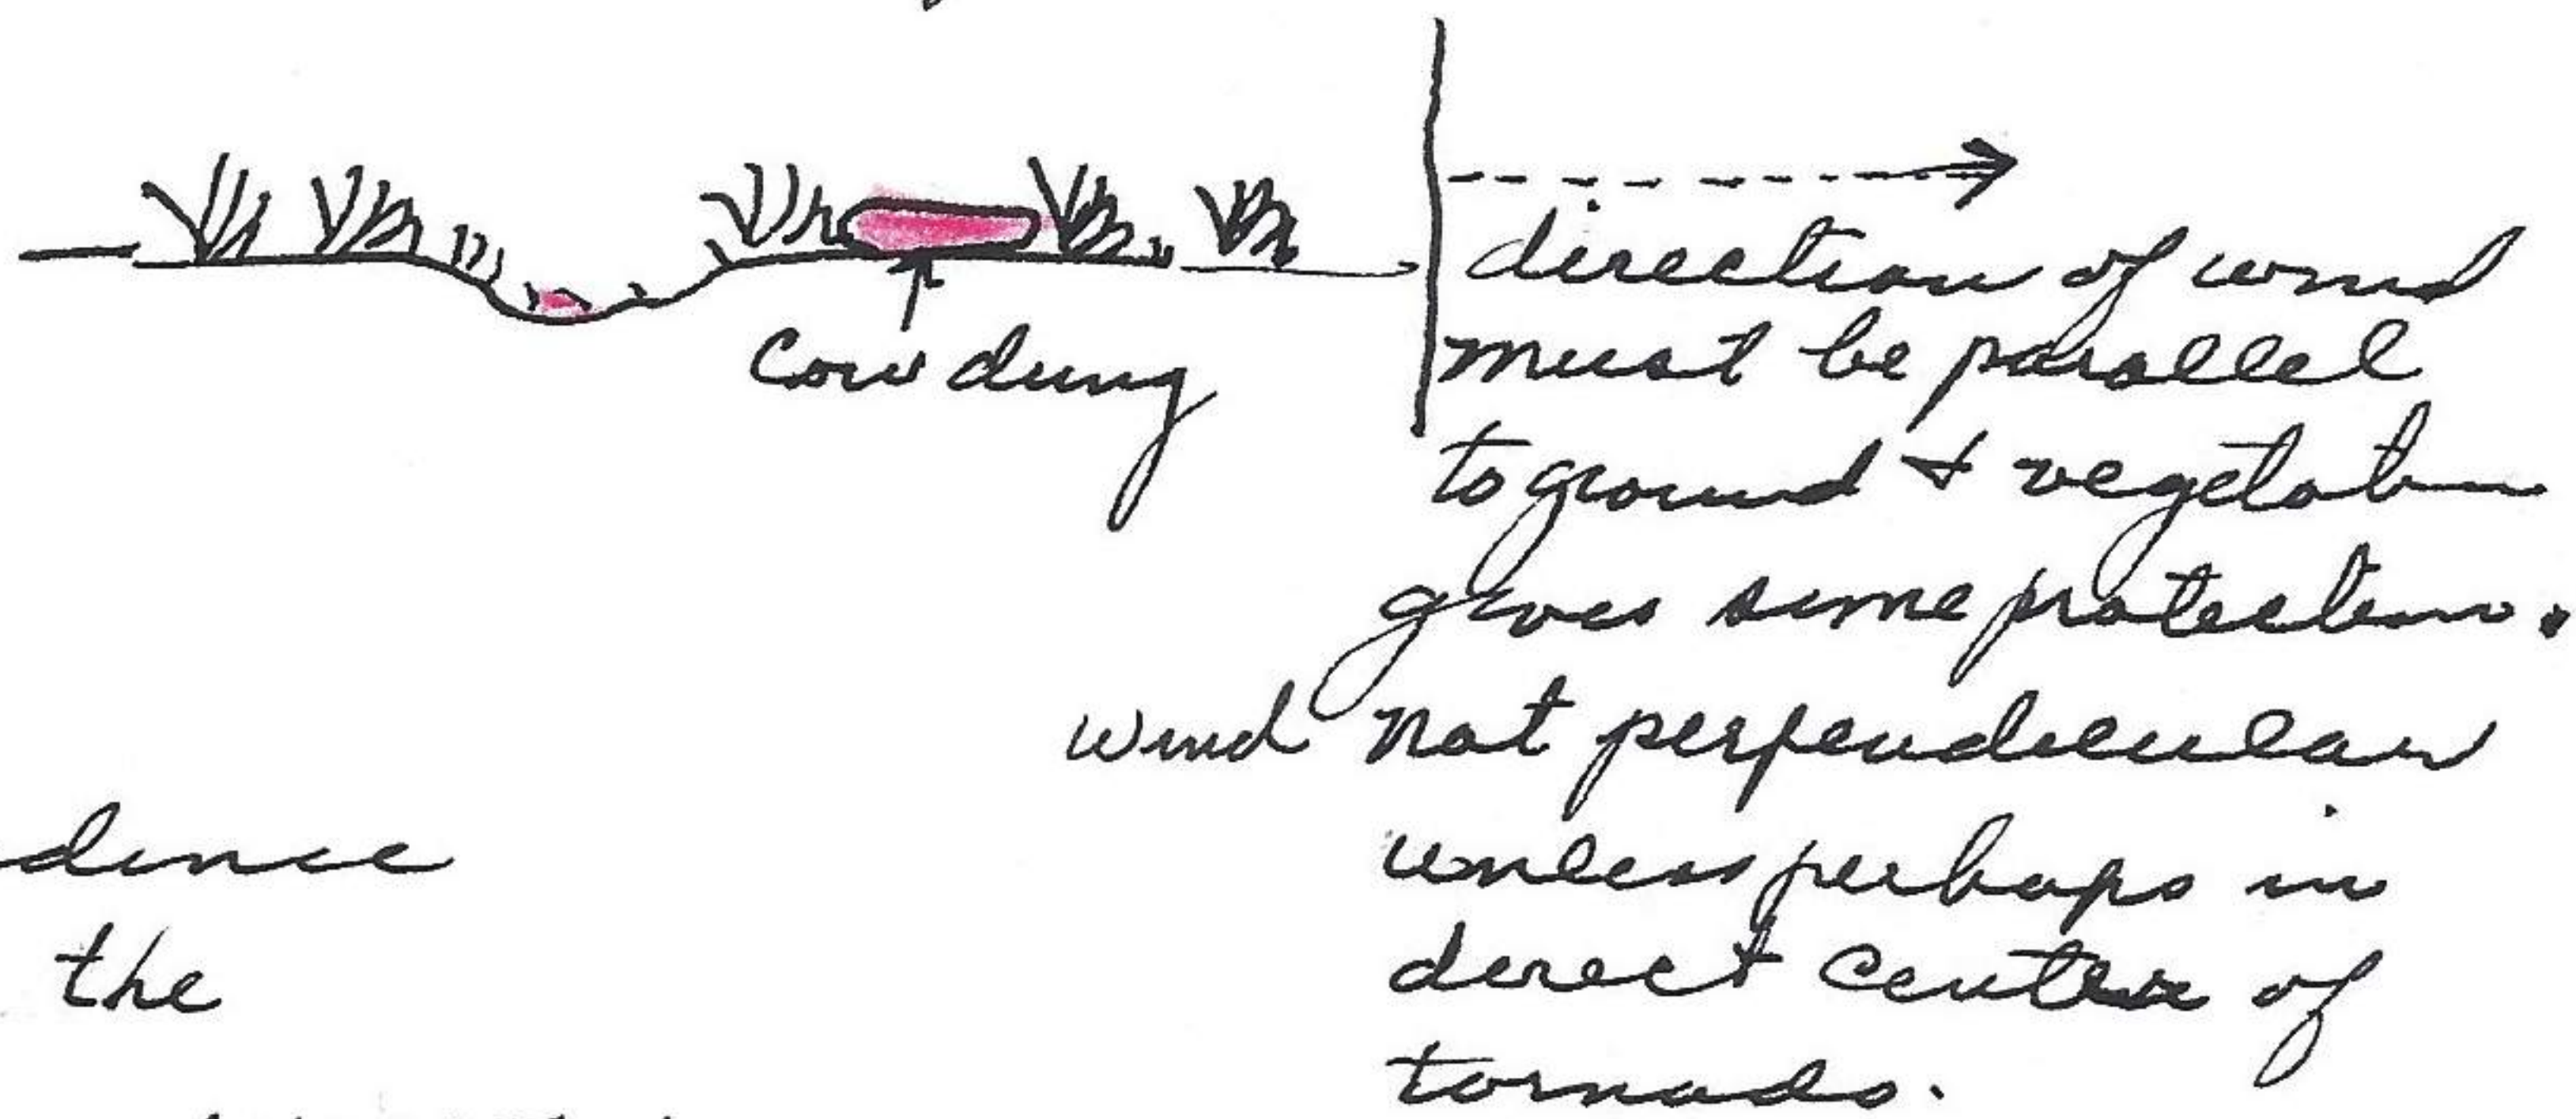 Cow dung
direction of wind
must be parallel
to ground + vegetation
gives some protection.
wind not perpendicular
unless perhaps in
direct center of
tornado.
dence
the